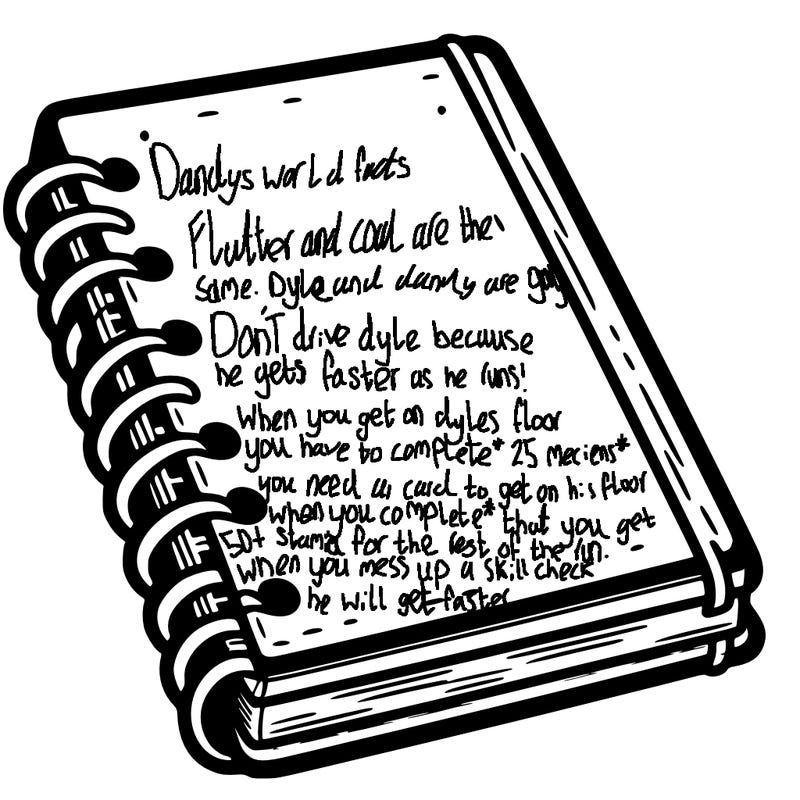 Dandys world facts
Flutter and coal are the
same. Dyle and dandy are gay
Don'T drive dyle because
he gets faster as he runs!
when you get on dyles floor
you have to complete* 25 meciens*
you need a card to get on his floor
when you complete* that you get
50+ stamia for the rest of the run.
when you mess up a skill check
he will get faster